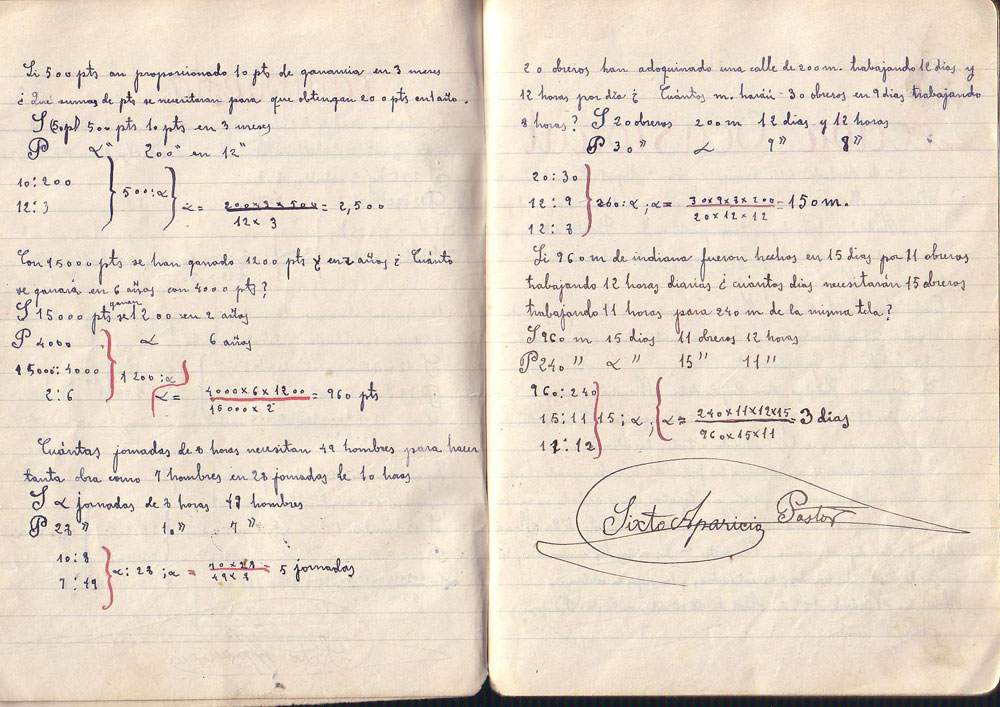 Si 500 pts an proporcionado 10 pts de ganancia en 3 meses
¿ Qué sumas de pts se necesitaran para que obtengan 200 pts en 1 año.
S 500 pts 10 pts en 3 meses
P α " 200 " en 12 "
10:200
12:3
500:α
α = 200x3x500 = 2,500
12 x 3
Con 15000 pts se han ganado 1200 pts y en 2 años ¿ Cuánto
se ganará en 6 años con 4000 pts?
ganan
S 15000 pts se 1200 en 2 años
P 4000 α 6 años
15000:4000
2:6
1200:α
α = 4000x6x1200 = 960 pts
15000 x 2
Cuántas jornadas de 8 horas necesitan 49 hombres para hacer
tanta obra como 7 hombres en 28 jornadas de 10 horas
S α jornadas de 8 horas 49 hombres
P 28 " 10 " 7 "
10:8
7:49
α:28 ;α = = 5 jornadas
49x8
20 obreros han adoquinado una calle de 200 m. trabajando 12 días y
12 horas por día ¿ Cuántos m. harán 30 obreros en 9 dias trabajando
8 horas? S 20 obreros 200 m 12 dias y 12 horas
P 30 " α 9 " 8 "
20:30
12:9
12:8
200:α ;α = 30x9x8x200 = 150 m.
20x12x12
Si 960 m de indiana fueron hechos en 15 dias por 11 obreros
trabajando 12 horas diarias ¿ cuántos dias necesitarán 15 obreros
trabajando 11 horas para 240 m de la misma tela?
S 960 m 15 dias 11 obreros 12 horas
P 240 " α " 15 " 11 "
960:240
15:11
11:12
15:α ; α = 240x11x12x15 = 3 dias
960x15x11
Sixto Aparicio Pastor